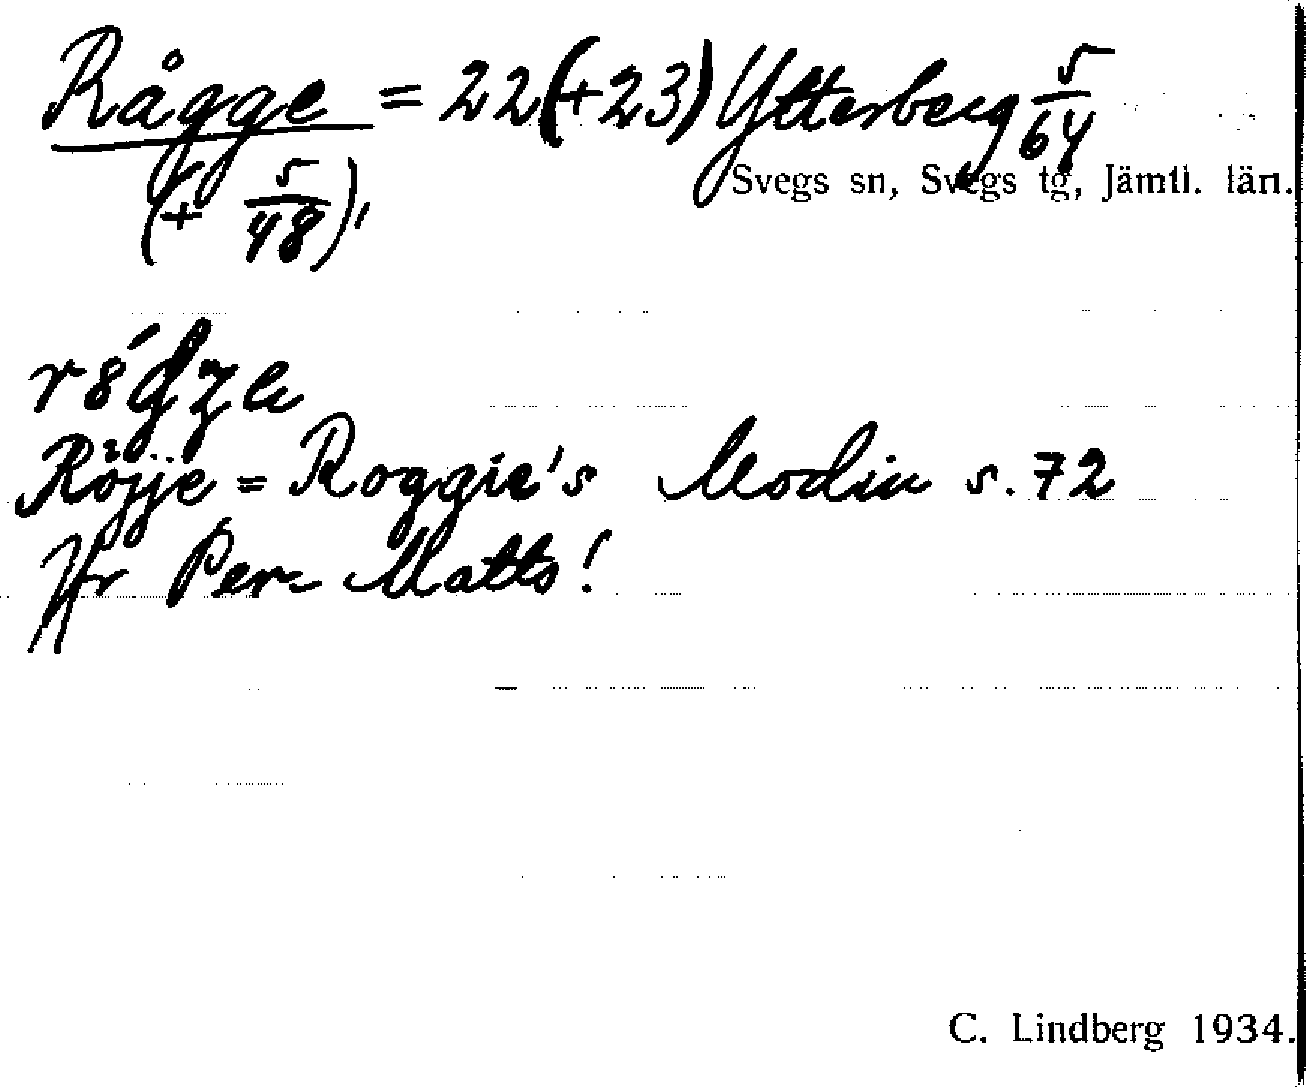 Rågge = 22(+23) Ytterberg 5/64
Svegs sn, Svegs tg, Jämtl. län.
(+ 5/48),
Röjje = Roggie's Modin s. 72
Jfr Per-Matts!
C. Lindberg 1934.